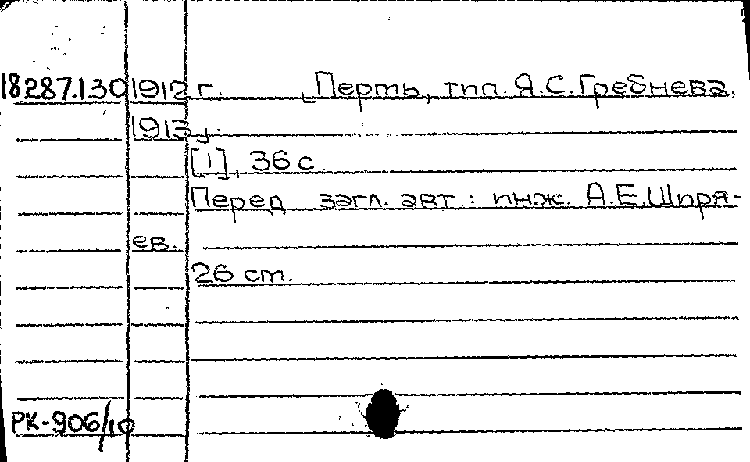 18287.130 1912 г. [Пермь, тип. Я.С.Гребнева,
1913].
[1], 36 с.
Перед загл. авт.: инж. А.Е.Ширя-
ев.
26 см.
РК-906/10